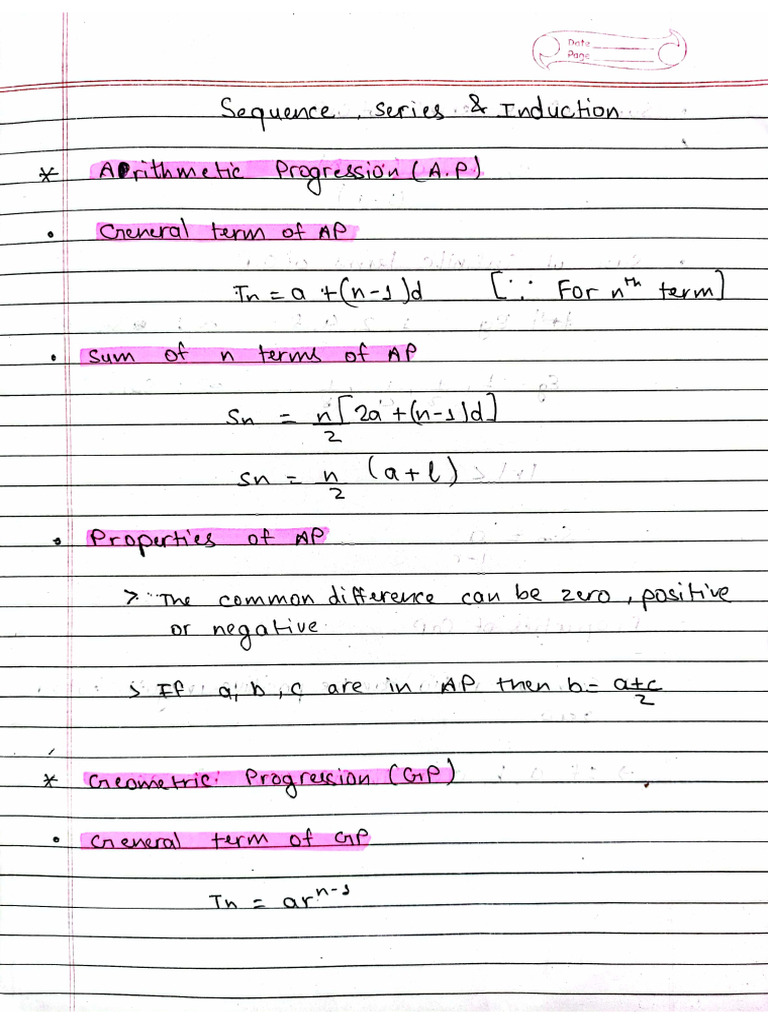 Date
Page
Sequence, Series & Induction
* Arithmetic Progression (A.P)
• General term of AP
Tn = a + (n-1)d [∵ For nᵗʰ term]
• Sum of n terms of AP
Sn = n/2 [2a + (n-1)d]
Sn = n/2 (a + l)
• Properties of AP
> The common difference can be zero, positive
or negative.
> If a, b, c are in AP then b = a+c/2
* Geometric Progression (GP)
• General term of GP
Tn = arⁿ⁻¹